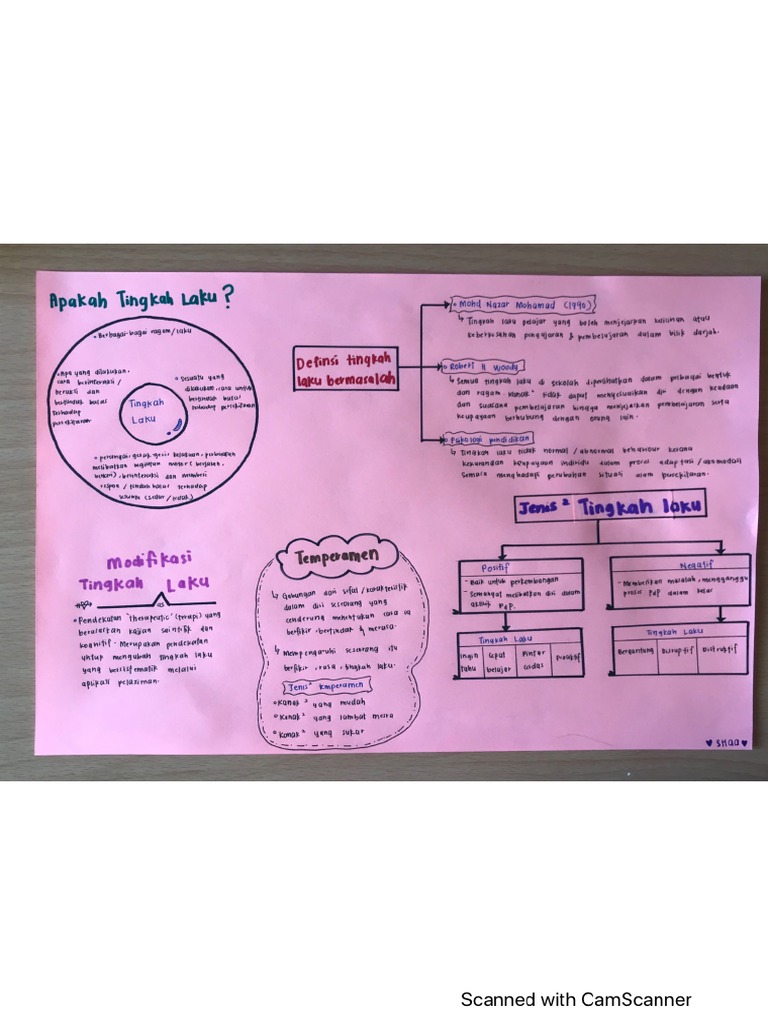 Apakah Tingkah Laku?
• Berbagai-bagai ragam/laku
• Apa yang dilakukan,
cara berinteraksi /
bereaksi dan
bertindak balas
terhadap
persekitaran
• Sesuatu yang
dilakukan, cara untuk
bertindak balas
terhadap persekitaran
Tingkah
Laku
melibatkan kegiatan motor (berjalan,
berlari), berinteraksi dan memberi
respon / tindak balas terhadap
sesuatu (sedar / tidak)
Definsi tingkah
laku bermasalah
• Mohd Nazar Mohamad (1990)
↳ Tingkah laku pelajar yang boleh menjejaskan kelicinan atau
keberkesanan pengajaran & pembelajaran dalam bilik darjah.
• Robert H Woody
↳ Semua tingkah laku di sekolah diperlihatkan dalam pelbagai bentuk
dan ragam. Kanak² tidak dapat menyesuaikan diri dengan keadaan
dan suasana pembelajaran hingga menjejaskan pembelajaran serta
keupayaan berhubung dengan orang lain.
• Psikologi pendidikan
↳ Tingkah laku tidak normal / abnormal behaviour kerana
kekurangan keupayaan individu dalam proses adaptasi /
Semasa menghadapi perubahan situasi dlam persekitaran.
Jenis² Tingkah laku
Positif
- Baik untuk perkembangan
- Semangat melibatkan diri dalam
aktiviti PdP.
Tingkah Laku
Ingin
tahu
Cepat
belajar
Pintar
Cerdas
Proaktif
Negatif
- Memberikan masalah, mengganggu
proses PdP dalam kelas
Tingkah Laku
Bergantung
Disruptif
Distruktif
Modifikasi
Tingkah Laku
• Pendekatan 'therapeutic' (terapi) yang
berasaskan kajian saintifik dan
kognitif - Merupakan pendekatan
untuk mengubah tingkah laku
yang bersistematik melalui
aplikasi pelaziman.
Temperamen
↳ Gabungan dari sifat / karakteristik
dalam diri seseorang yang
cenderung menentukan cara ia
berfikir, bertindak & merasa.
↳ Mempengaruhi seseorang itu
berfikir, rasa, tingkah laku.
Jenis² temperamen
• Kanak² yang mudah
• Kanak² yang lambat mesra
• Kanak² yang sukar
♥ SHAA ♥
Scanned with CamScanner